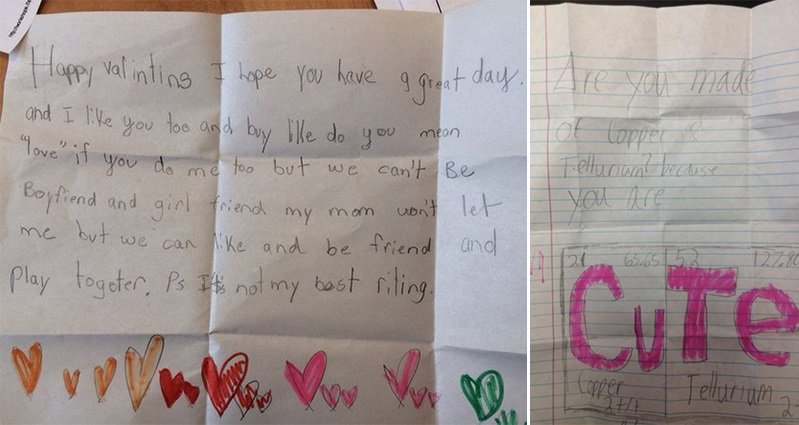 Happy valintins I hope you have a great day.
and I like you too and buy like do you mean
"love" if you do me too but we can't Be
Boyfiend and girl friend my mom won't let
me but we can like and be friend and
play togeter. Ps It's not my best riting.
Are you made
Of Copper &
Tellurium? because
you are
63.65 52 127.60
CuTe
Copper Tellurium